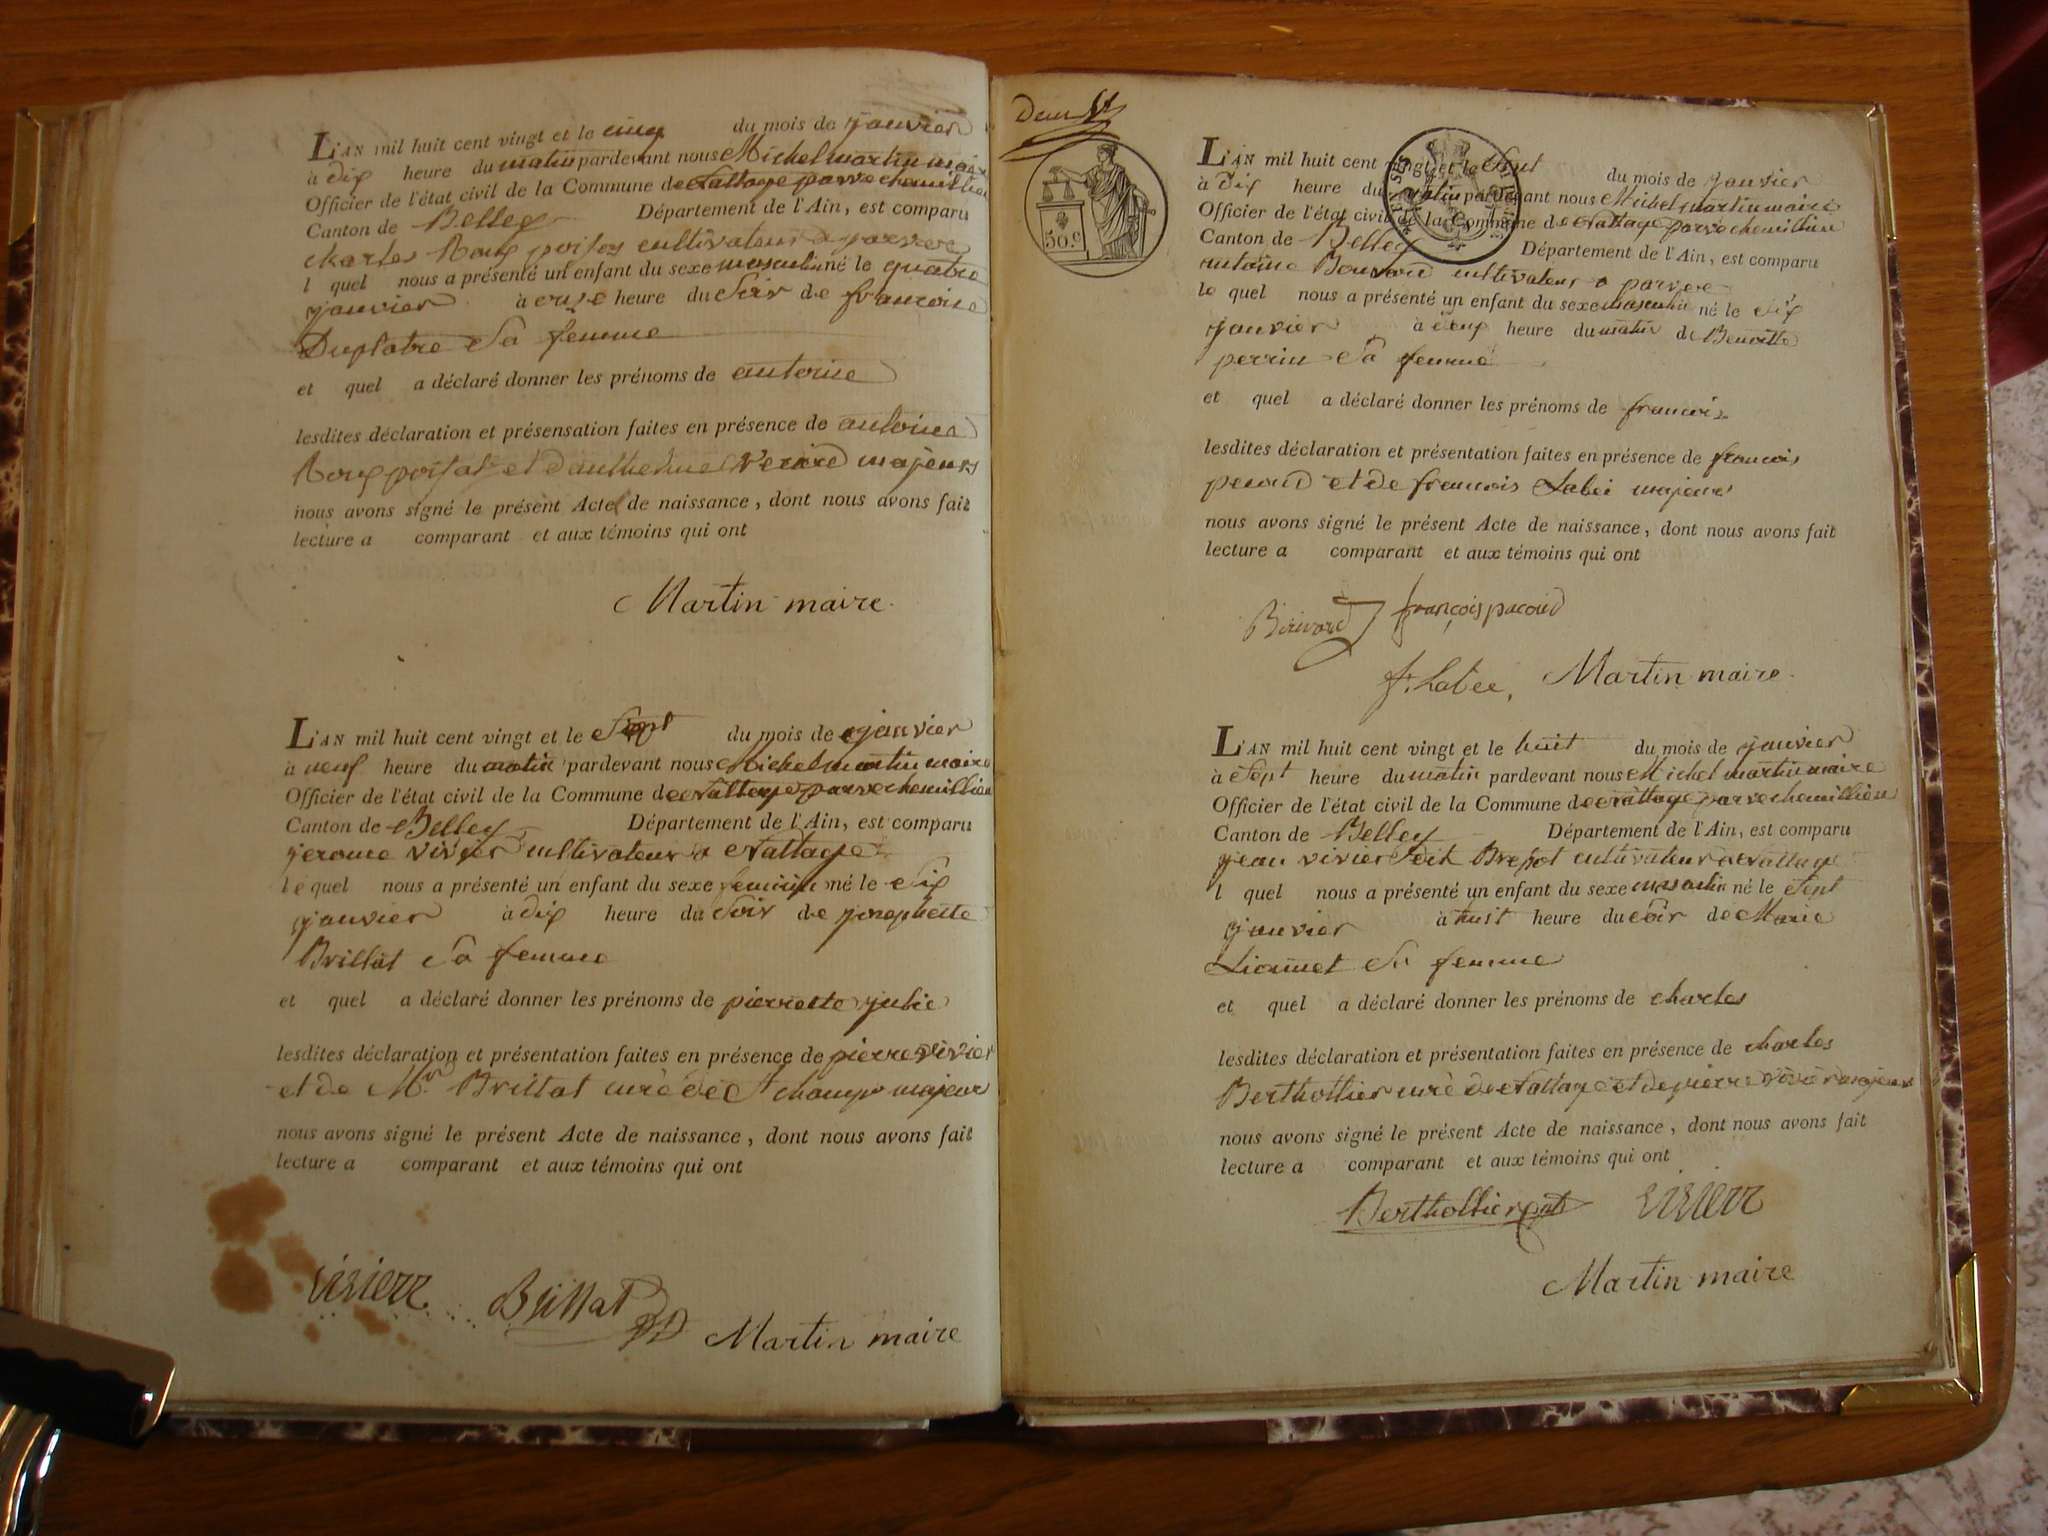 L'AN mil huit cent vingt et le cinq du mois de janvier
à dix heure du matin pardevant nous Michel martin maire
Officier de l'état civil de la Commune de parve chemillieu
Canton de Belley Département de l'Ain, est comparu
charles Roux cultivateur a parve
l quel nous a présenté un enfant du sexe masculin né le quatre
janvier à onze heure du Soir de francoise
Duplatre Sa femme
et quel a déclaré donner les prénoms de antoine
lesdites déclaration et présensation faites en présence de antoine
Roux et danthelme majeurs
nous avons signé le présent Acte de naissance, dont nous avons fait
lecture a comparant et aux témoins qui ont
Martin maire
L'AN mil huit cent vingt et le Sept du mois de janvier
à neuf heure du matin pardevant nous Michel martin maire
Officier de l'état civil de la Commune de nattage parve chemillieu
Canton de Belley Département de l'Ain, est comparu
jerome vivier cultivateur a nattage
lequel nous a présenté un enfant du sexe feminin né le Six
janvier à dix heure du Soir de josephette
Brillat Sa femme
et quel a déclaré donner les prénoms de pierrette julie
lesdites déclaration et présentation faites en présence de pierre vivier
et de Mr. Brillat curé de St champ majeur
nous avons signé le présent Acte de naissance, dont nous avons fait
lecture a comparant et aux témoins qui ont
vivierr Brillat
Martin maire
Deux
50.c
L'AN mil huit cent vingt et le Sept du mois de janvier
à dix heure du matin pardevant nous Michel martin maire
Officier de l'état civil de la Commune de nattage parve chemillieu
Canton de Belley Département de l'Ain, est comparu
antoine Bouvard cultivateur a parve
le quel nous a présenté un enfant du sexe masculin né le Six
janvier à heure du matin de Benoitte
perrin Sa femme
et quel a déclaré donner les prénoms de francois
lesdites déclaration et présentation faites en présence de francois
pacoud et de francois Labei majeurs
nous avons signé le présent Acte de naissance, dont nous avons fait
lecture a comparant et aux témoins qui ont
françois pacoud
f. Labee, Martin maire
L'AN mil huit cent vingt et le huit du mois de janvier
à Sept heure du matin pardevant nous Michel martin maire
Officier de l'état civil de la Commune de nattage parve chemillieu
Canton de Belley Département de l'Ain, est comparu
jean vivier dit cultivateur a nattage
l quel nous a présenté un enfant du sexe masculin né le Sept
janvier à huit heure du Soir de Marie
Sa femme
et quel a déclaré donner les prénoms de charles
lesdites déclaration et présentation faites en présence de charles
Berthollier curé de nattage et de pierre vivier majeur
nous avons signé le présent Acte de naissance, dont nous avons fait
lecture a comparant et aux témoins qui ont
Berthollier vivierr
Martin maire